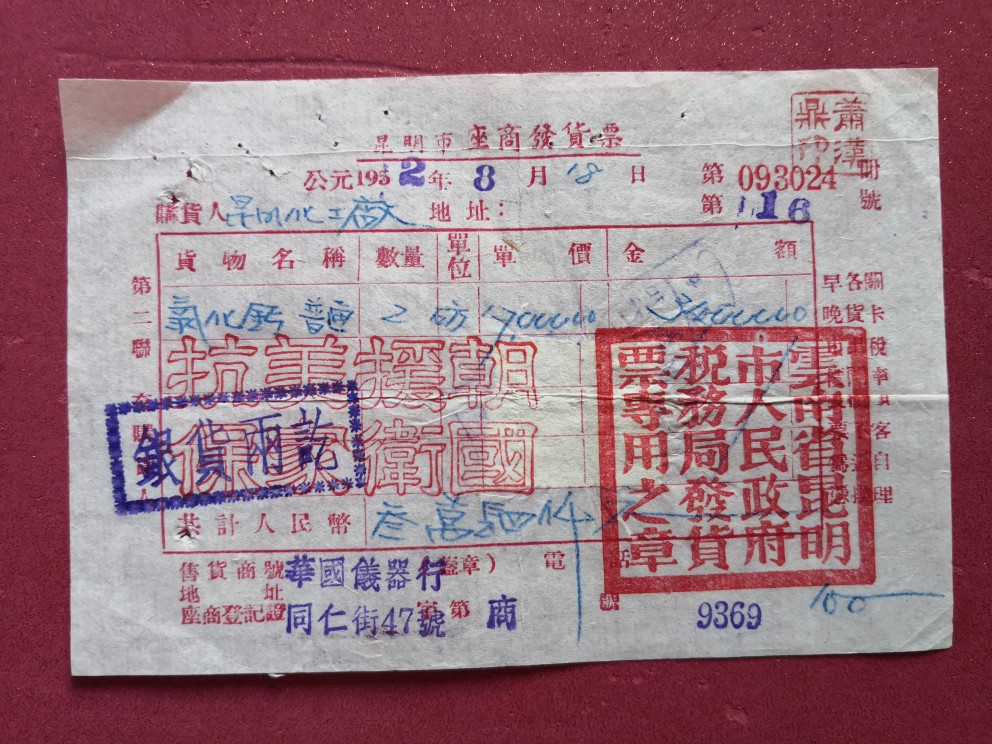 蕭漢鼎印
昆明市座商發货票
公元1952年8月18日
第093024册
第116號
購貨人 昆明化工廠 地址：
貨物名稱 數量 單位 單價 金額
氯化鈣 2 磅 1700000 3400000
抗美援朝
保家衛國
銀貨兩訖
雲南省昆明市人民政府税務局發貨票專用之章
共計人民幣 叁萬肆仟
售貨商號 華國儀器行 (蓋章) 電話
地址 同仁街47號
座商登記證 字第 商 9369 號
100
第二聯